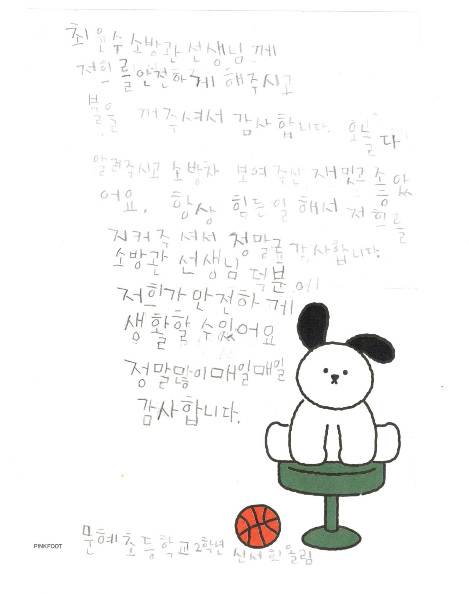 최윤수 소방관 선생님께
저희를 안전하게 해주시고
불을 꺼주셔서 감사합니다. 오늘 다
알려주시고 소방차 보여주신 재밌고 좋았
어요. 항상 힘든일 해서 저희를
지켜주셔서 정말로 감사합니다.
소방관 선생님 덕분에
저희가 안전하게
생활할 수있어요
정말많이매일매일
감사합니다.
문혜초등학교 2학년 신서희 올림
PINKFOOT